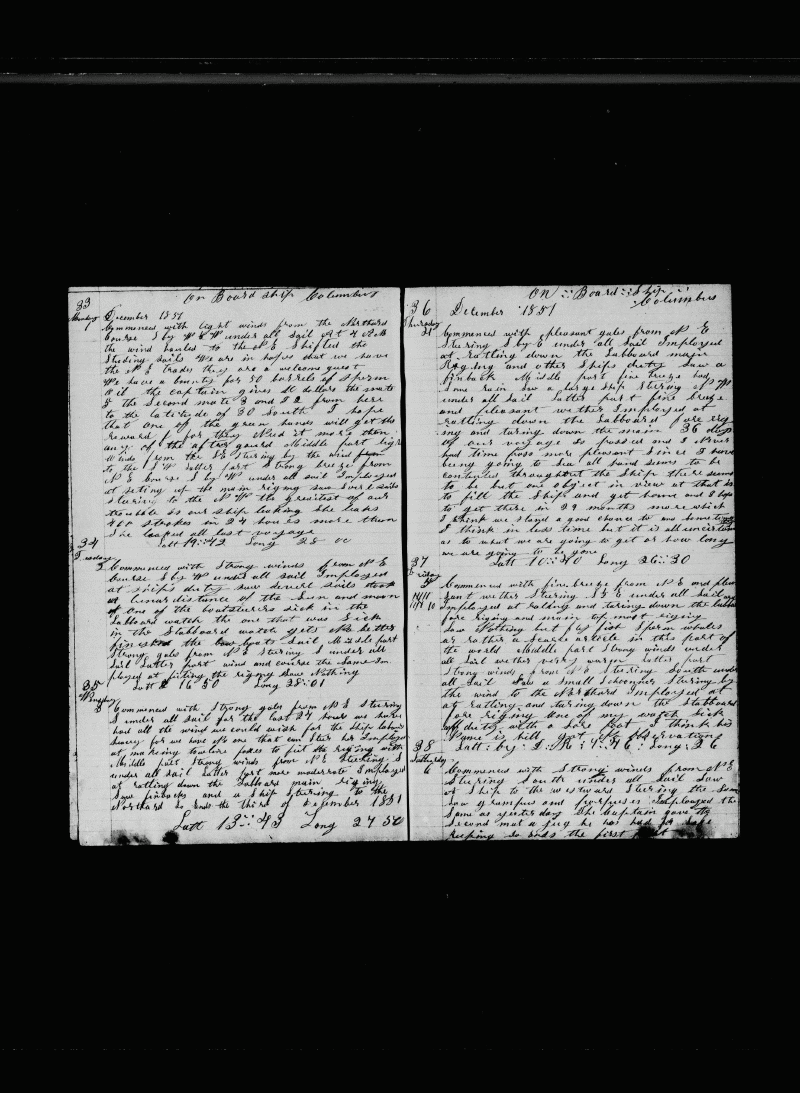 On Board ship Columbus
33
Monday
December 1851
Commenced with light winds from the Northard
Course S by W & W under all sail at 4
the wind hauled to the N E Shifted the
Studing sails We are in hopes that we have
the N E trades they are a welcome guest
We have a bounty for 50 barrels of sperm
oil the captain gives 10 dollars the mate
5 the Second mate 3 and 2 from here
to the latitude of 30 South I hope
that one of the green hands will get the
reward for they Need it more then
any of the after guard Middle part
winds from the N E Steering by the wind
to the S W latter part Strong breeze from
N E Course S by W under all sail Imployed
at seting up the main riging saw
Steering to the N W the greatest of our
trouble is our ship leaking She leaks
400 strokes in 24 hours more then
She leaked all last voyage
34 Latt 19::42 Long 28 00
Tuesday
2 Commences with Strong winds from N E
Course S by W under all sail Imployed
at ships duty saw severl sails
a lunar distance of the Sun and moon
One of the boatsteerers sick in the
Labboard watch the one that was Sick
in the Stabboard watch gets No better
finished the bow boats Sail Middle part
Strong gales from N E Steering S under all
Sail Latter part wind and course the Same Im
ployed at fiting the riging saw Nothing
35 Latt 16 50 Long 28::01
3 Commences with Strong gales from N E Steering
S under all Sail for the last 24 hours we have
had all the wind we could wish for the Ship labours
for we have No one that can Steer her Imployed
at making to fit the riging with
Middle part Strong winds from N E Steering S
under all Sail Latter part more moderate Imployed
at ratling down the Labboard main riging
Saw finbacks and a Ship Steering to the
Northard So Ends the third of December 1851
Latt 13::43 Long 27 50
ON :: Board :: Ship ::
Columbus
36
Thursday
December 1851
Commences with pleasant gales from N E
Steering S by E under all Sail Imployed
at ratling down the Labboard major
Riging and other Ships duty Saw a
finback Middle part fine breeze had
Some rain Saw a large ship Steering N W
under all Sail Latter part fine breeze
and pleasant wether Imployed at
ratling down the Labboard fore rig
ing and taring down the main 36 days
of our voyage is passed and I Never
had time pass more pleasant Since I have
being going to Sea all hand seems to be
contented throughout the Ship there seems
to be but one object in view at that is
to fill the Ship and get home and I hope
to get there in 29 months more which
I think we stand a good chance to
I think in less time but it is all uncertain
as to what we are going to get or how long
we are going to be gone
37 Latt 10::40 Long 26::30
Friday
5 Commences with fine breeze from N E and plea
sant wether Steering S E under all Sail
Imployed at ratling and taring down the
fore riging and main top most riging
Saw Nothing but fly fish Sperm whales
as rather a Scarce article in this part of
the world Middle part Strong winds under
all Sail wether very warm Latter part
Strong winds from N E Steering South under
all Sail Saw a Small Schooner Stering by
the wind to the Northard Imployed at
at ratling and taring down the Stabboard
fore riging One of my watch Sick
off duty with a Sore foot I think his
Name is hill Got No Observation
38 Latt: by: D:R: 7:46: Long: 26
Saturday
6 Commences with Strong winds from N E
Steering South under all Sail Saw
a Ship to the westward Steering the Same
Saw grampus and porpuses Imployed the
Same as yesterday the Captain gave the
Second mate a he has had
keeping So ends the first